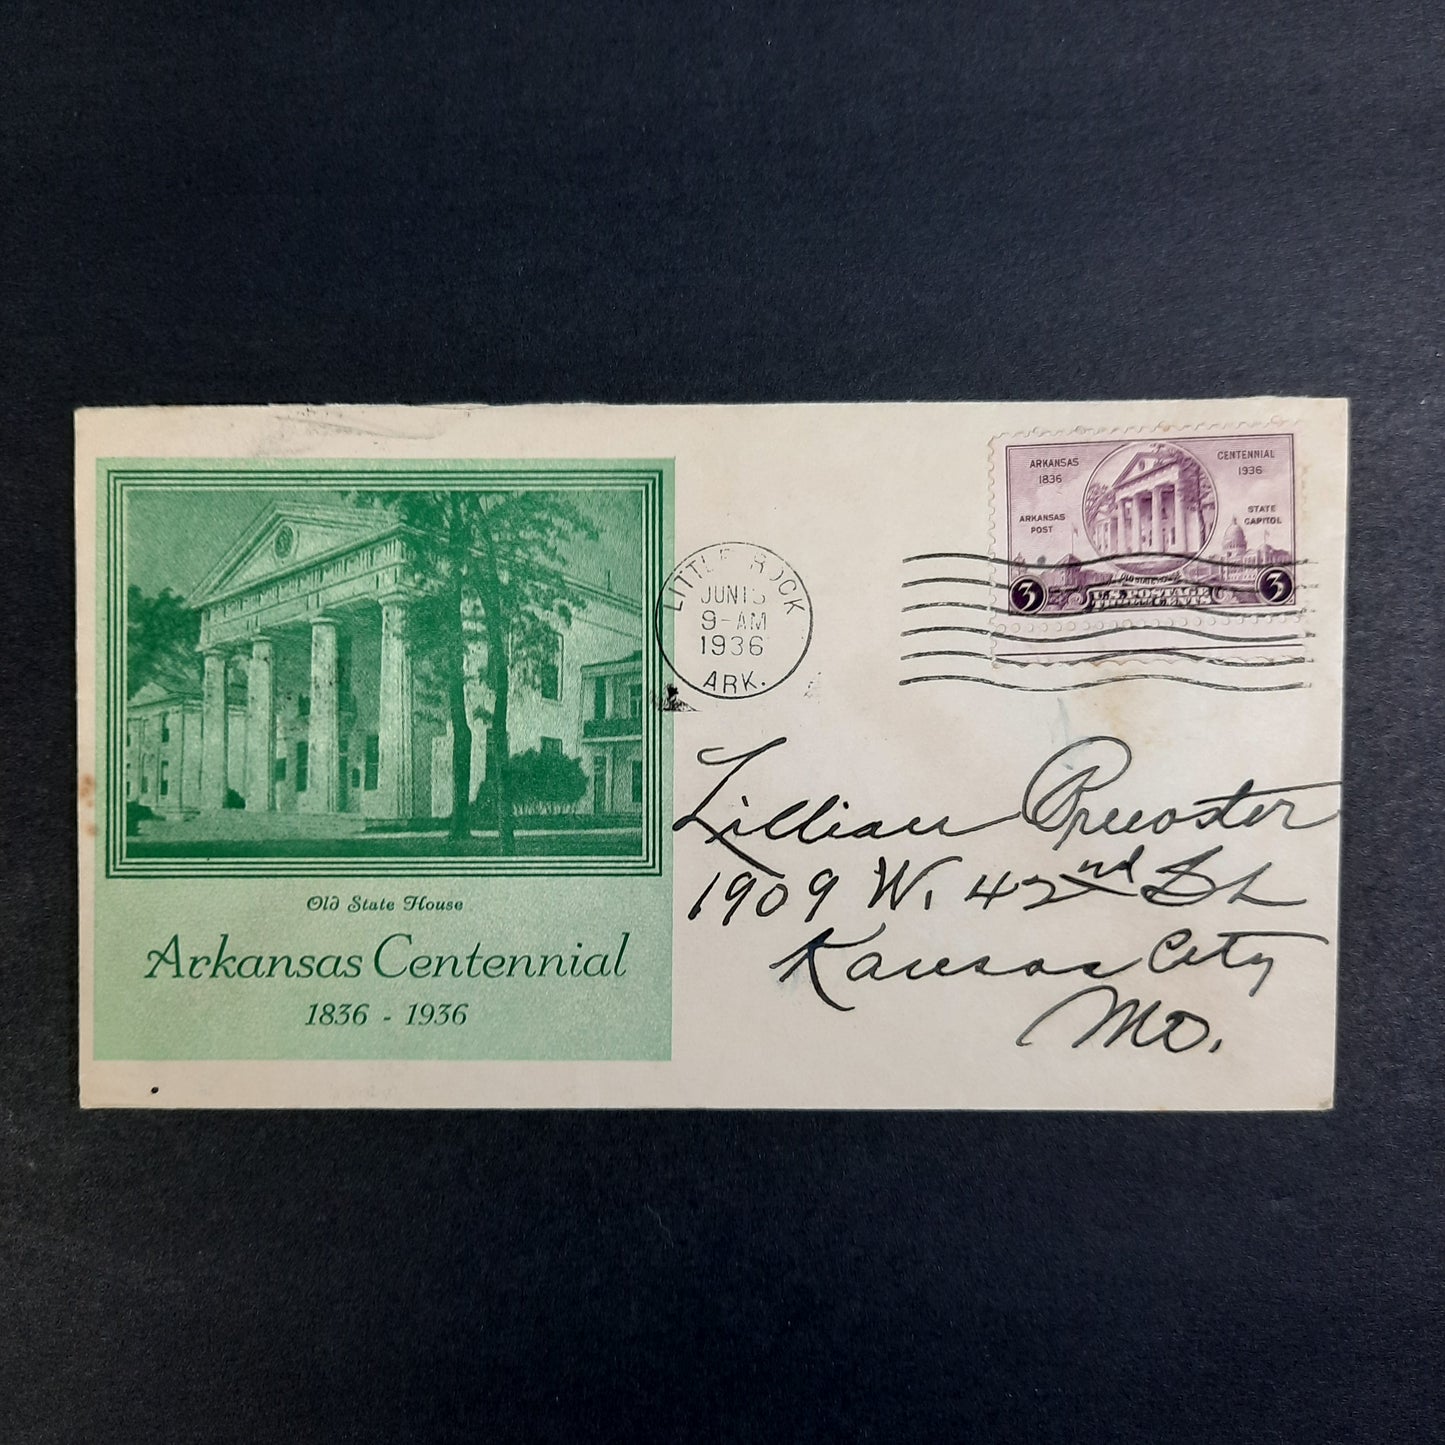 ARKANSAS 1836
CENTENNIAL 1936
ARKANSAS POST
STATE CAPITOL
OLD STATE HOUSE
3 U.S. POSTAGE 3
THREE CENTS
LITTLE ROCK
JUN 15
9-AM
1936
ARK.
Old State House
Arkansas Centennial
1836 - 1936
Lillian
1909 W. 42nd St
Kansas City
Mo.